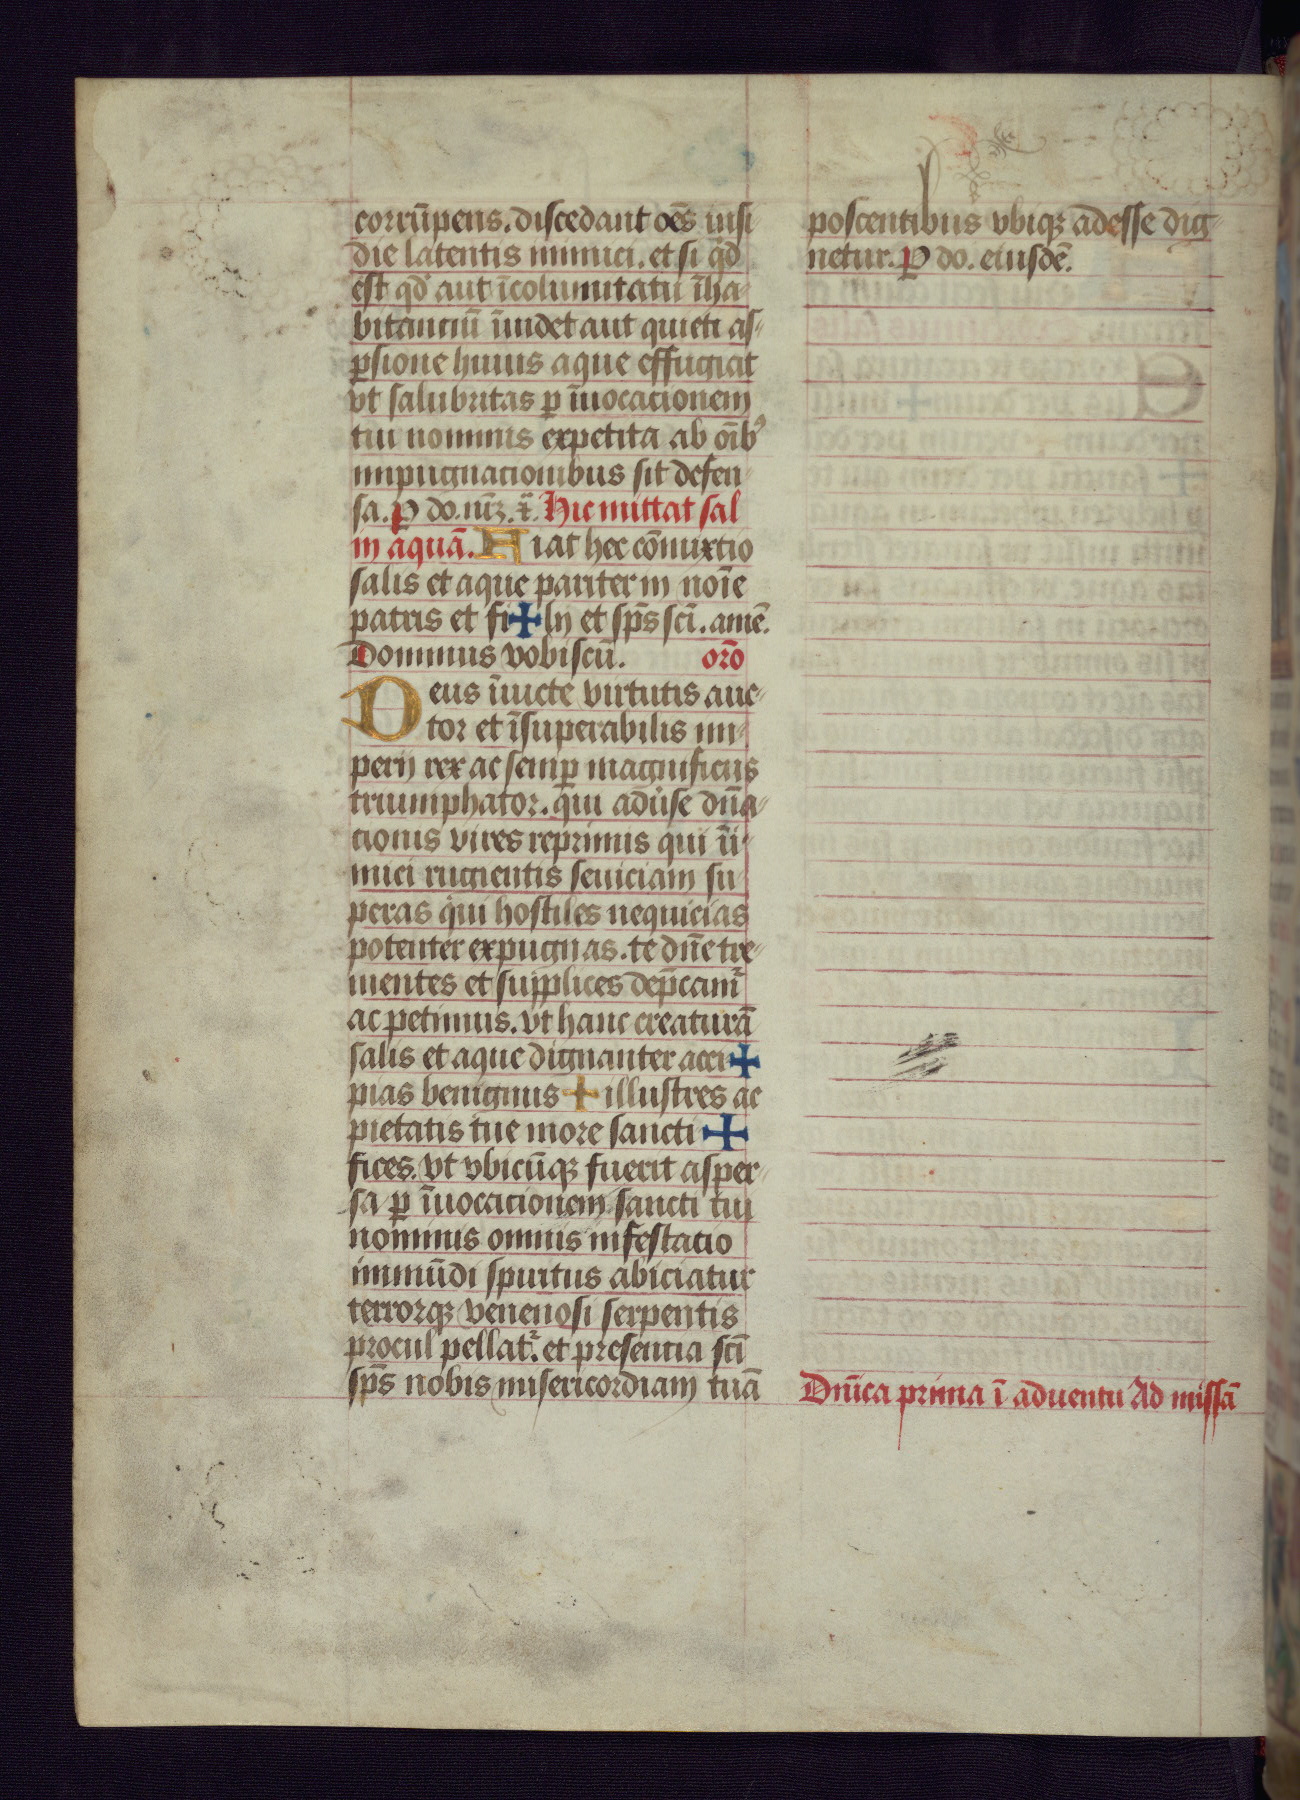 corrūpens. discedant oēs insi
die latentis inimici. et si qd
est qd aut īcolumitatu īha
bitanciū īuidet aut quieti as
ꝑsione huius aque effugiat
vt salubritas ꝑ īuocacionem
tui nominis expetita ab oīb9
impugnacionibus sit defen
sa. P do. nr̄ꝫ. x̄. Hic mittat sal
in aquā. Fiat hec cōmixtio
salis et aque pariter in noīe
patris et fi✠lij et sp̄s sci̅. amē.
Dominus vobiscū. oro̅
Deus īuicte virtutis auc
tor et īsuperabilis im
perij rex ac semꝑ magnificus
triumphator. qui aduise dn̄a
cionis vires reprimis qui īi
mici rugientis seuiciam su
peras qui hostiles nequicias
potenter expugnas. te dn̄e tre
mentes et supplices dep̄camr
ac petimus. vt hanc creaturā
salis et aque dignanter acci✠
pias benignus ✠ illustres ac
pietatis tue more sancti ✠
fices. vt vbicūqꝫ fuerit asper
sa ꝑ īuocacionem sancti tui
nominis omnis infestacio
inmūdi spiritus abiciatur
terrorqꝫ venenosi serpentis
procul pellatr. et presentia sci̅
sp̄s nobis misericordiam tuā
poscentibus vbiqꝫ adesse dig
netur. P do. eiusdē.
Dn̄ica prima ī aduentu Ad missā